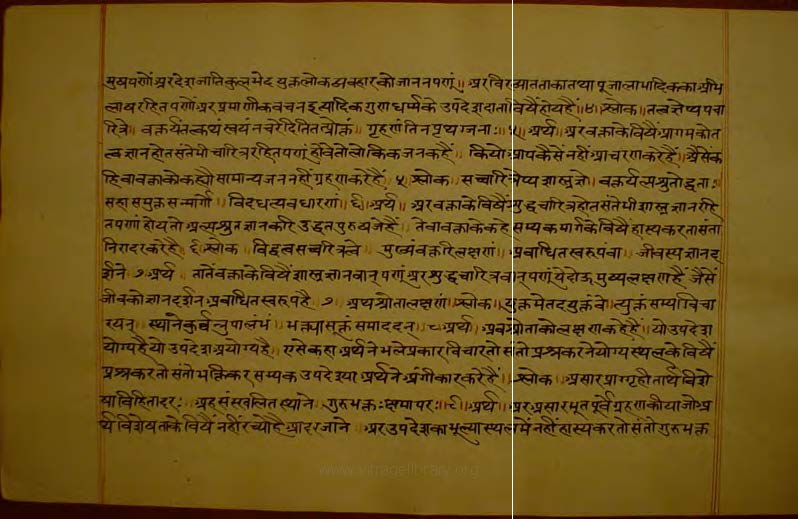 मुषपणों अर देश जाति कुल भेद युक्त लोक व्यवहारको जाननपणूं ॥ अर विख्यातताका तथा पूजा लाभादिकका अभि
लाष रहितपणों अर प्रमाणीक वचन इत्यादिक गुण धर्म्मके उपदेशदाता विषैं होय हैं ॥४॥ श्लोक ॥ तत्वज्ञेप्यपचा
रित्रे ॥ वक्तर्येतत्कथं स्वयं न चरेदिति तत्प्रोक्तं ॥ गृह्णंति न पृथग्जनाः ॥५॥ अर्थ ॥ अर वक्ताके विषैं आगमको त
त्वज्ञान होत संतेभी चारित्ररहितपणं होवे तो लोकिक जन कहैं ॥ कि यो आप कैसे नहीं आचरण करे है ॥ अैसें क
हि वा वक्ताको कह्यौ सामान्य जन नहीं ग्रहण करे हैं ॥ ५ श्लोक ॥ सच्चारित्रेप्यशास्त्रज्ञे ॥ वक्तर्यल्पश्रुतोद्धताः
सहासमुक्तसन्मार्गे ॥ विदधत्यवधारणां ॥६॥ अर्थ ॥ अर वक्ताके विषैं शुद्ध चारित्र होत संतेभी शास्त्रज्ञान रहि
तपणां होय तो अल्पश्रुतज्ञानकरि उद्धत पुरुष जे हैं ॥ ते वा वक्ताके कहे सम्यक मार्गके विषैं हास्य करता संता
निरादर करे हैं ॥ ६ श्लोक ॥ विद्वत्वसच्चरित्रत्वे ॥ मुष्यं वक्तरि लक्षणं ॥ अबाधितस्वरूपं वा ॥ जीवस्य ज्ञानद
र्शने ॥ ७ अर्थ ॥ तातें वक्ताके विषैं शास्त्रज्ञानवान् पणूं अर शुद्ध चारित्रवान पणूं ये दोऊ मुष्य लक्षण हैं जैसें
जीवको ज्ञानदर्शन अबाधित स्वरूप है ॥ ७ ॥ अथ श्रोता लक्षणं ॥ श्लोक ॥ युक्तमेतदयुक्तं वे ॥ त्युक्तं सम्यग्विचा
रयन् ॥ स्थाने कुर्वन्नुपालंभं ॥ भक्त्या सूक्तं समाददन् ॥ ८ अर्थ ॥ अब श्रोताको लक्षण कहे हैं ॥ यो उपदेश
योग्य है यो उपदेश अयोग्य है ॥ एसे कहा अर्थने भले प्रकार विचारतो संतो प्रश्न करने योग्य स्थलके विषैं
प्रश्न करतो संतो भक्तिकर सम्यक उपदेश्या अर्थने अंगीकार करे है ॥ श्लोक ॥ असारप्राग्गृहीतार्थ विशे
षाविहितादरः ॥ अहसंस्खलितस्थाने ॥ गुरुभक्तः क्षमापरः ॥९॥ अर्थ ॥ अर असारभूत पूर्वे ग्रहण कीया जो अ
र्थ विशेष ताके विषैं नहीं रच्यो है आदर जाने ॥ अर उपदेशका भूल्या स्थलमें नहीं हास्य करतो संतो गुरुभक्त
www.vitragelibrary.org